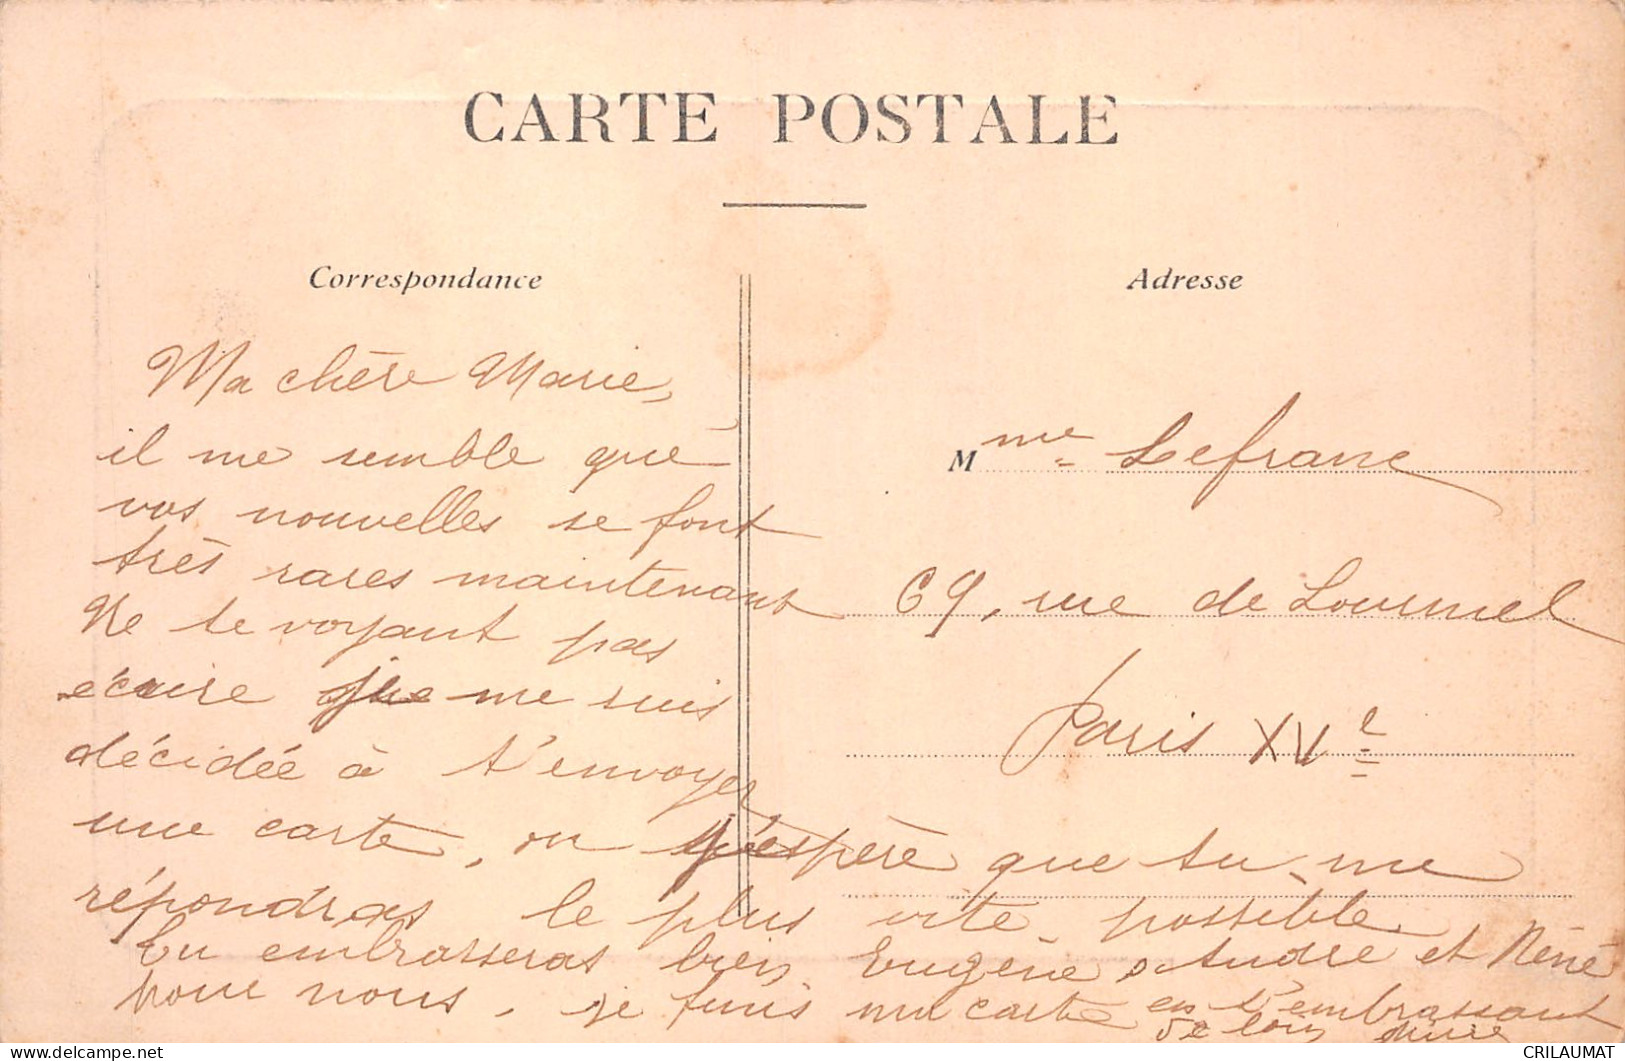 CARTE POSTALE
Correspondance
Adresse
Ma chère Marie,
il me semble que
vos nouvelles se font
très rares maintenant
Ne te voyant pas
écrire je me suis
décidée à t'envoyer
une carte, ou j'espère que tu me
répondras le plus vite possible.
Tu embrasseras bien Eugène, André et Réné
pour nous, je finis ma carte en t'embrassant
de loin
Mme Lefranc
69, rue de Lourmel
Paris XVe
CRILAUMAT
delcampe.net